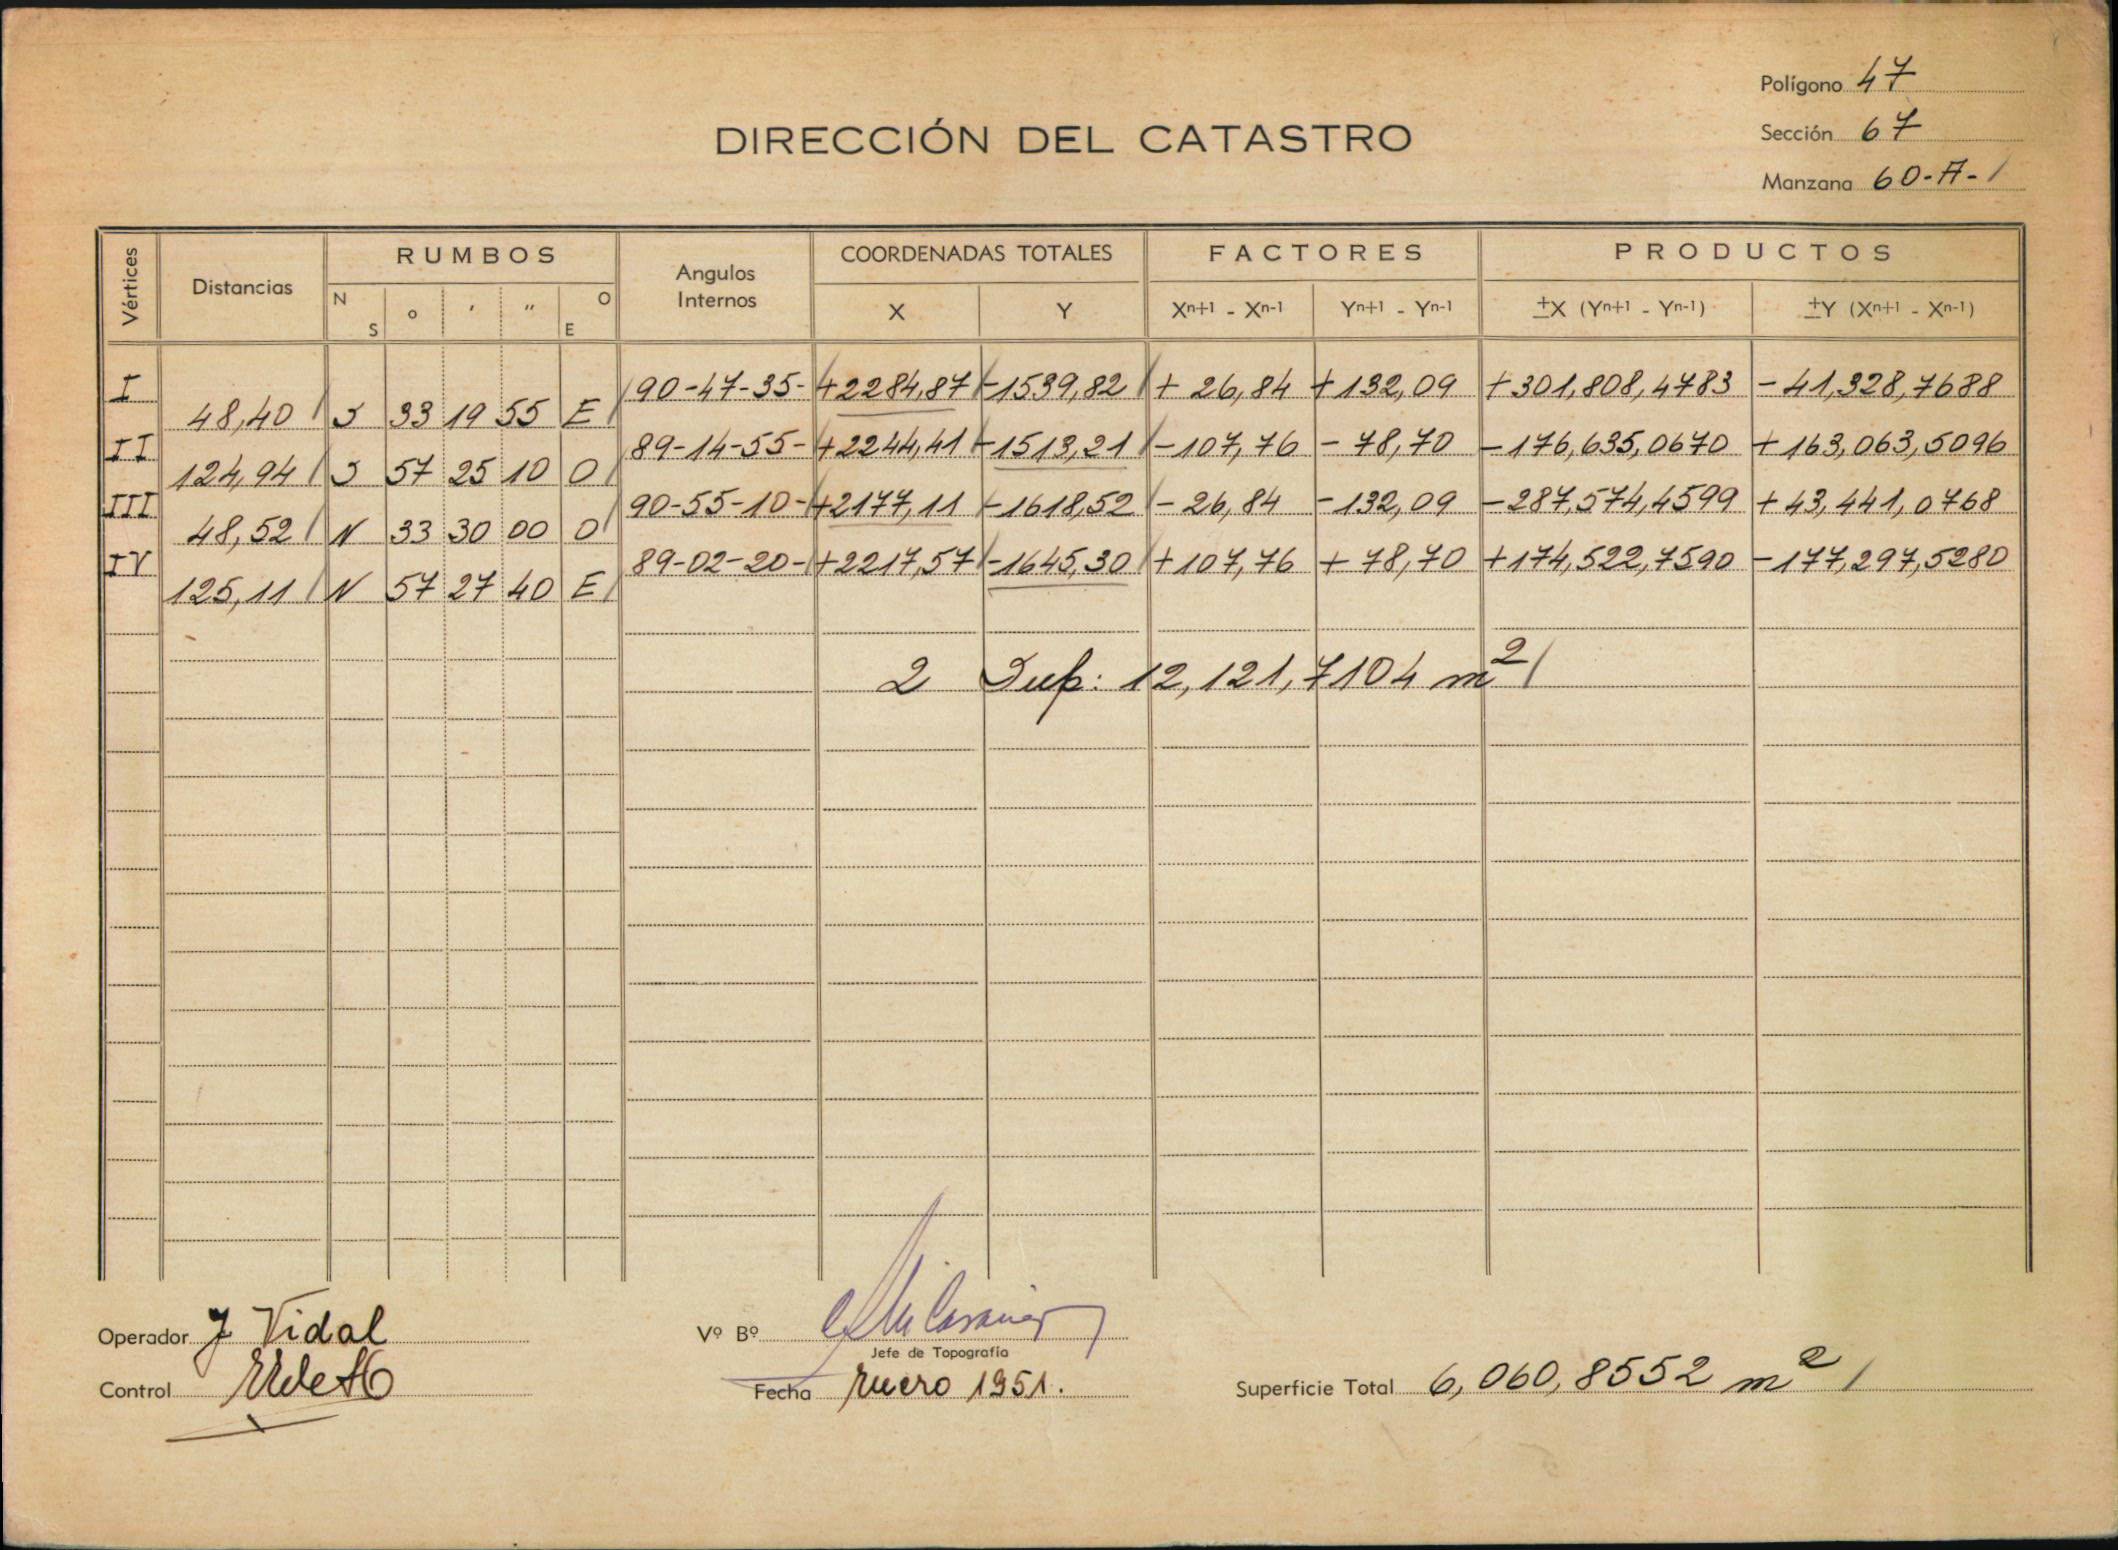 Polígono 47
DIRECCIÓN DEL CATASTRO
Sección 67
Manzana 60-A-1
Vértices Distancias RUMBOS Angulos Internos COORDENADAS TOTALES FACTORES PRODUCTOS
N S o ' " O E X Y Xn+1 - Xn-1 Yn+1 - Yn-1 ±X (Yn+1 - Yn-1) ±Y (Xn+1 - Xn-1)
I 90-47-35- +2284,87 -1539,82 + 26,84 +132,09 +301,808,4783 -41,328,7688
48,40 S 33 19 55 E
II 89-14-55- +2244,41 -1513,21 -107,76 - 78,70 -176,635,0670 +163,063,5096
124,94 S 57 25 10 O
III 90-55-10- +2177,11 -1618,52 - 26,84 -132,09 -287,574,4599 +43,441,0768
48,52 N 33 30 00 O
IV 89-02-20- +2217,57 -1645,30 +107,76 + 78,70 +174,522,7590 -177,297,5280
125,11 N 57 27 40 E
2 Sup: 12,121,7104 m2
Operador J Vidal
Vº Bº
Jefe de Topografia
Control
Fecha Enero 1951.
Superficie Total 6,060,8552 m2